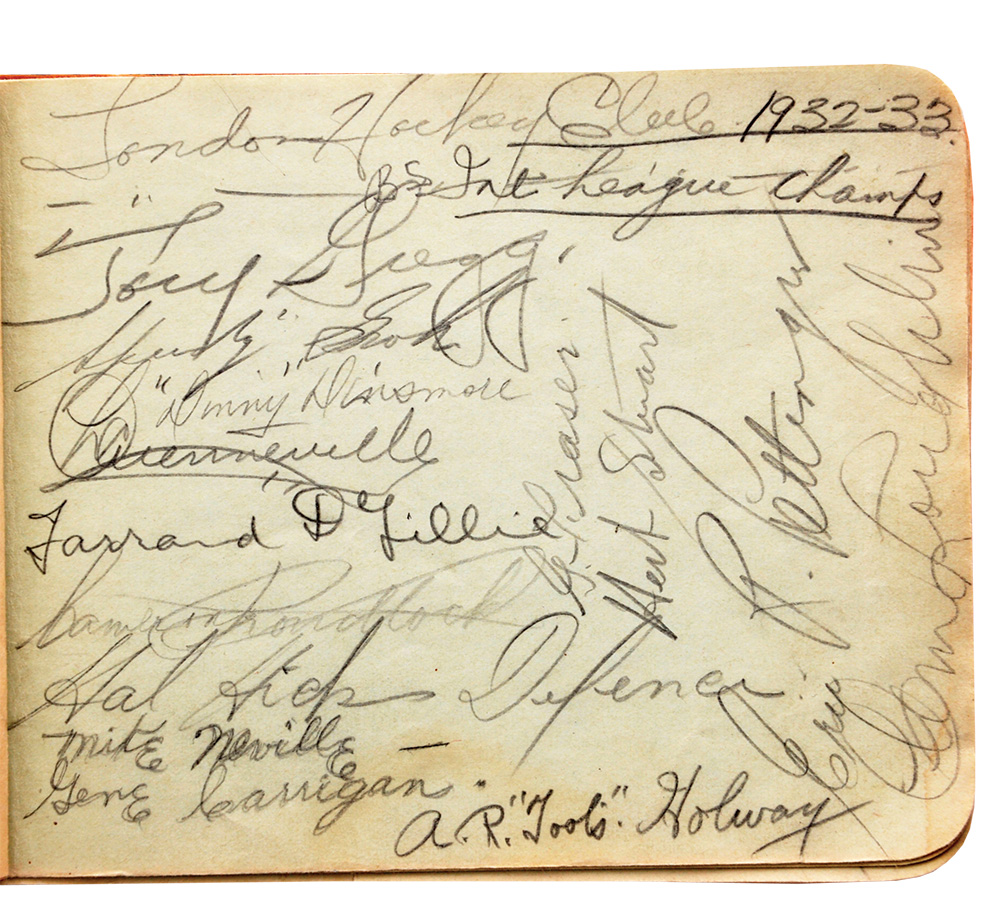 London Hockey Club 1932-33.
Int League Champs
Tory Gregg.
"Dinny" Dinsmore
Quenneville
Farrand Gillie
Cameron
Hal Hicks Defence
Mike Neville
Gene Carrigan.
A. R. "Toots" Holway
G. Fraser.
Herb Stuart
Eric R. Pettinger
Clem Loughlin